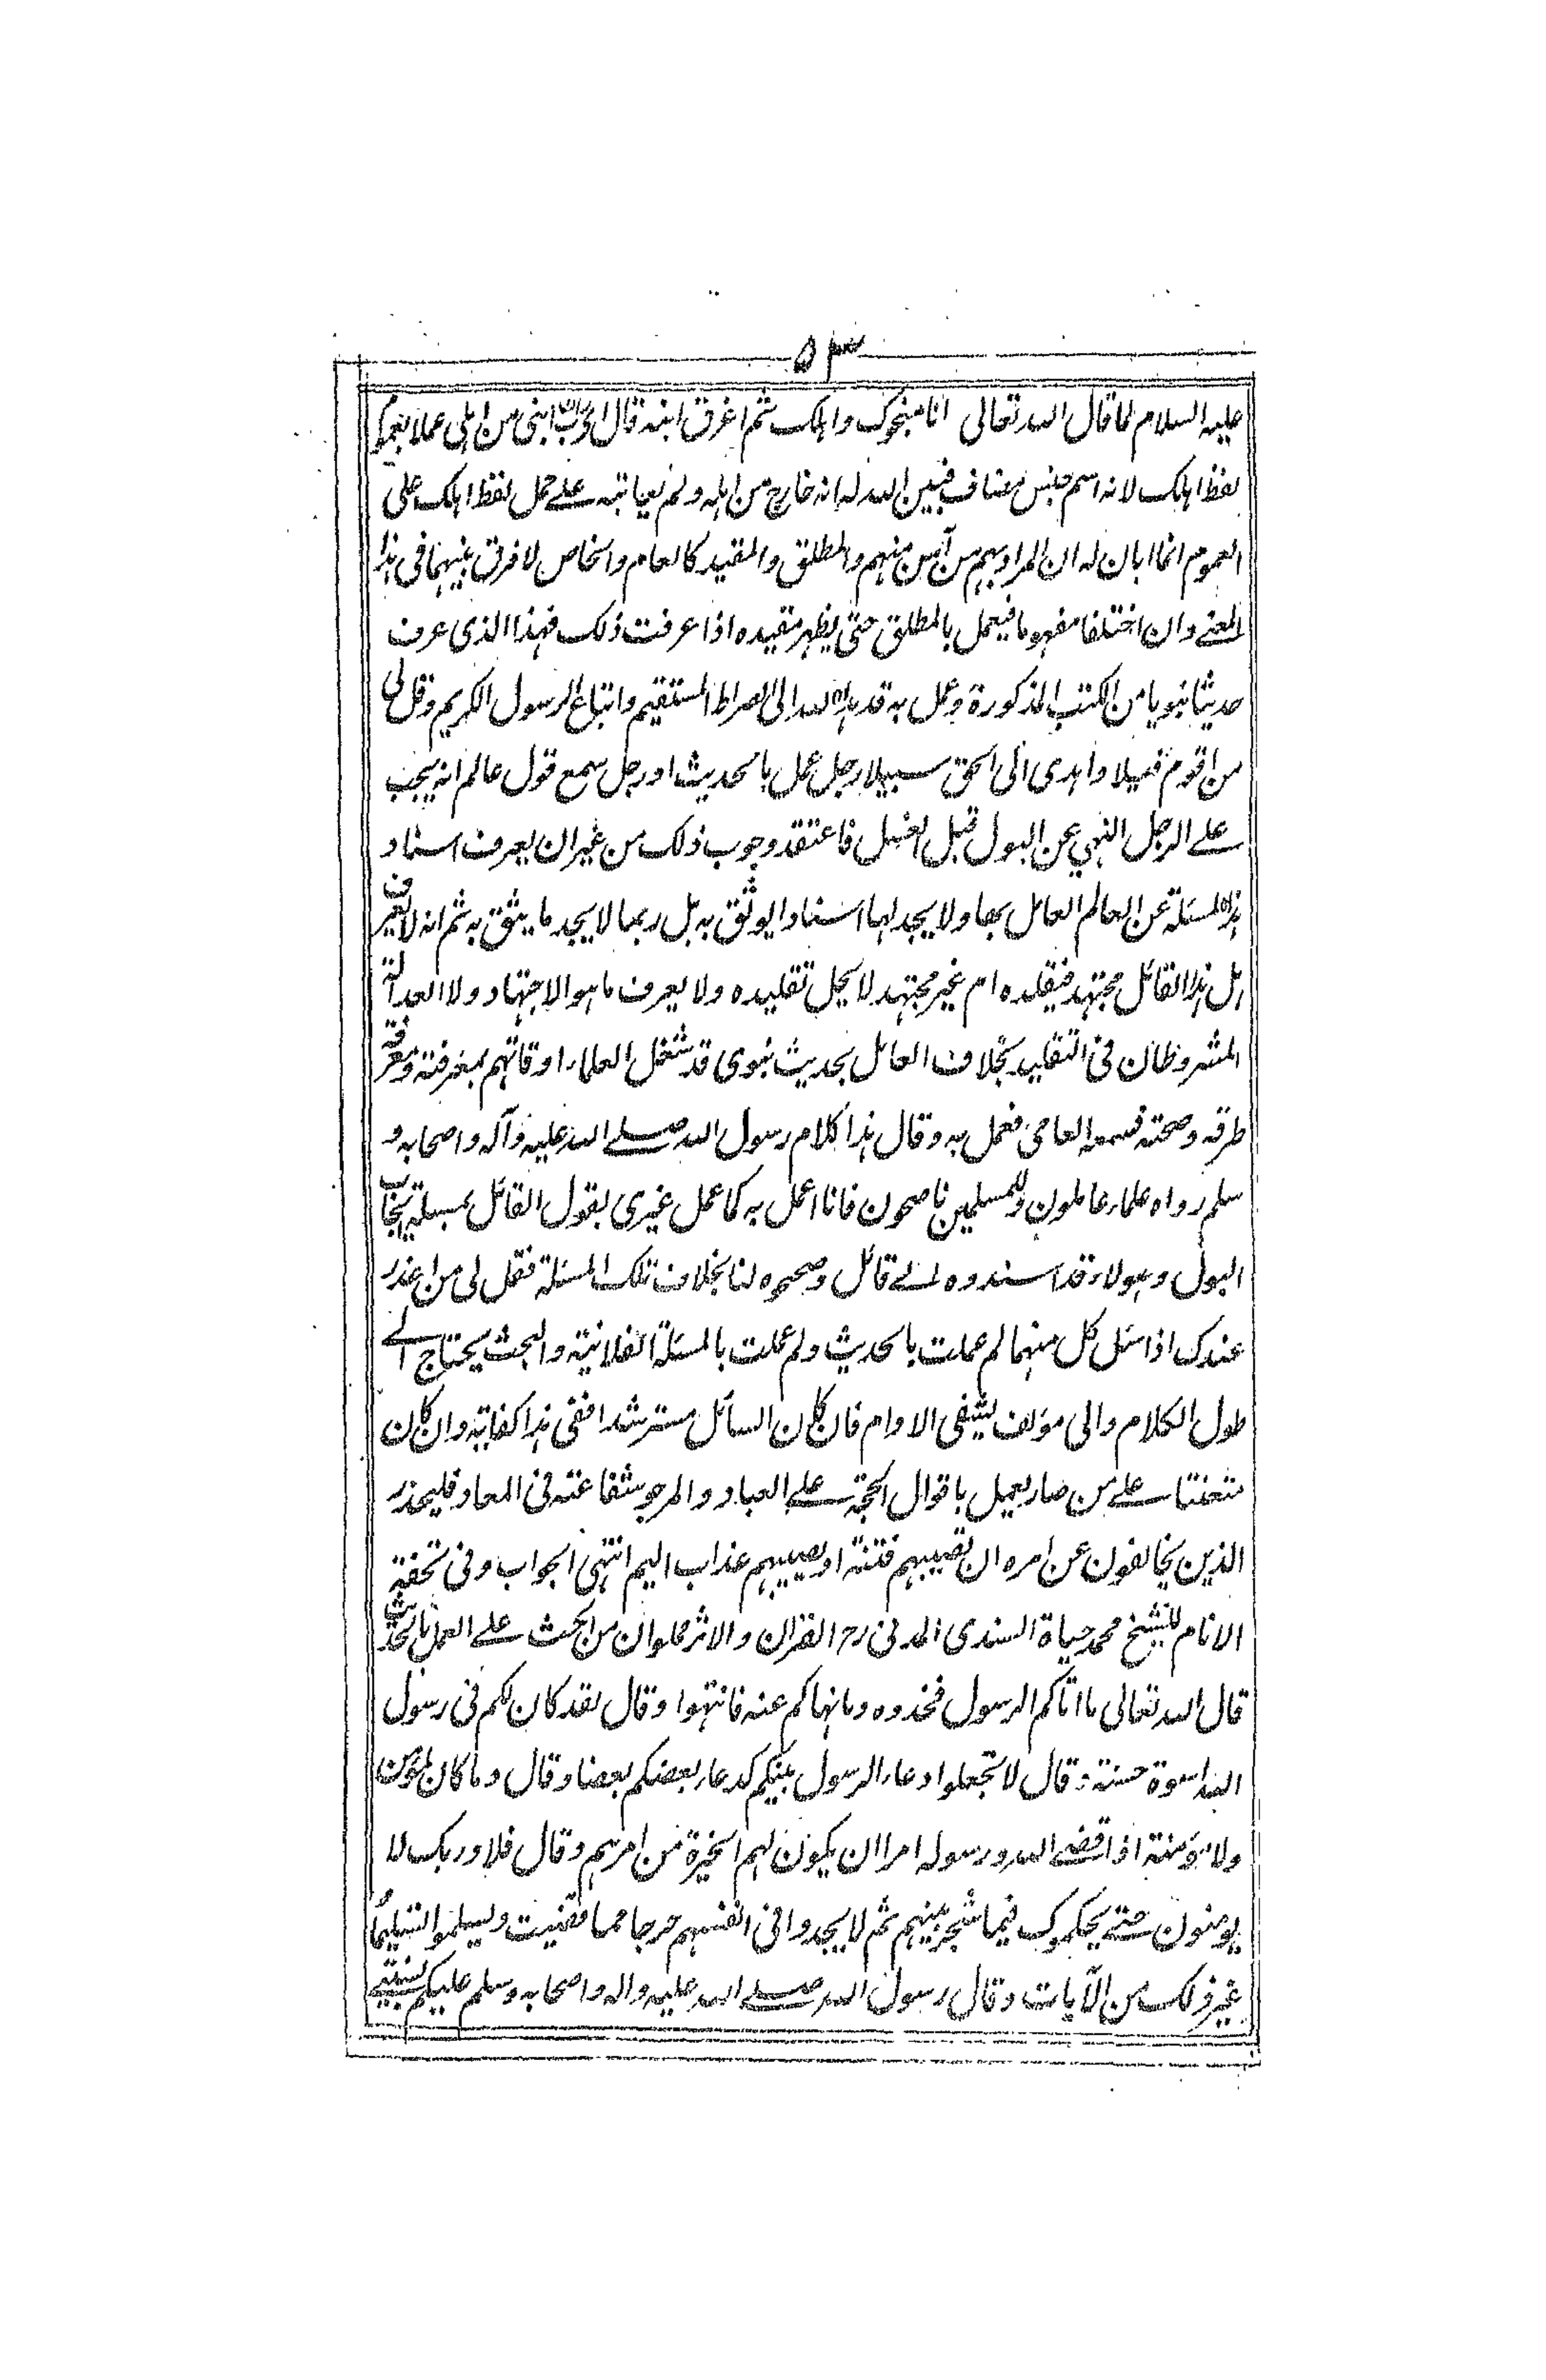 ۵۳
عليه السلام لما قال الله تعالى انا منجوك واهلك ثم اغرق ابنه قال اى رب ان ابنى من اهلى عملا بعموم
لفظ اهلك لانه اسم جنس مضاف فبين الله له انه خارج من اهله ولم يعاتبه على حمل لفظ اهلك على
العموم انما ابان له ان المراد بهم من آمن منهم والمطلق والمقيد كالعام والخاص لا فرق بينهما فى هذا
المعنى وان اختلفا مفهوما فيعمل بالمطلق حتى يظهر مقيده اذا عرفت ذلك فهذا الذى عرف
حديثا نبويا من الكتب المذكورة وعمل به قد هداه الله الى الصراط المستقيم واتباع الرسول الكريم وقل لى
من اقوم قيلا واهدى الى الحق سبيلا رجل عمل بالحديث او رجل سمع قول عالم انه يجب
على الرجل النهي عن البول قبل الغسل فاعتقد وجوب ذلك من غير ان يعرف اسناد
هذه المسئلة عن العالم العامل بها ولا يجد لها اسنادا يوثق به بل ربما لا يجد ما يثق به ثم انه لا يعرف
هل هذا القائل مجتهد فيقلده ام غير مجتهد لا يحل تقليده ولا يعرف ما هو الاجتهاد ولا العدالة
المشروطان فى التقليد بخلاف العامل بحديث نبوى قد شغل العلماء اوقاتهم بمعرفته ومعرفة
طرقه وصحته فسمعه العامى فعمل به وقال هذا كلام رسول الله صلى الله عليه وآله واصحابه و
سلم رواه علماء عاملون وللمسلمين ناصحون فانا اعمل به كما عمل غيرى بقول القائل بمسئلة ايجاب
البول وهولاء قد اسندوه الى قائل وصححوه لنا بخلاف تلك المسئلة فقل لى من اعذر
عندك اذا سئل كل منهما لم عملت بالحديث ولم عملت بالمسئلة الفلانية والبحث يحتاج الى
طول الكلام والى مؤلف يشفى الاوام فان كان السائل مسترشدا ففى هذا كفاية وان كان
متعنتا على من صار يعمل باقوال الحجة على العباد والمرجو شفاعته فى المعاد فليحذر
الذين يخالفون عن امره ان تصيبهم فتنة او يصيبهم عذاب اليم انتهى الجواب وفى تحفة
الانام للشيخ محمد حياة السندى المدنى رح القران والاثر مملوان من الحث على العمل بالحديث
قال الله تعالى ما اتاكم الرسول فخذوه وما نهاكم عنه فانتهوا وقال لقد كان لكم فى رسول
الله اسوة حسنة وقال لا تجعلوا دعاء الرسول بينكم كدعاء بعضكم بعضا وقال وما كان لمؤمن
ولا مؤمنة اذا قضى الله ورسوله امرا ان يكون لهم الخيرة من امرهم وقال فلا وربك لا
يومنون حتى يحكموك فيما شجر بينهم ثم لا يجدوا فى انفسهم حرجا مما قضيت ويسلموا تسليماً
غير ذلك من الآيات وقال رسول الله صلى الله عليه واله واصحابه وسلم عليكم بسنتى